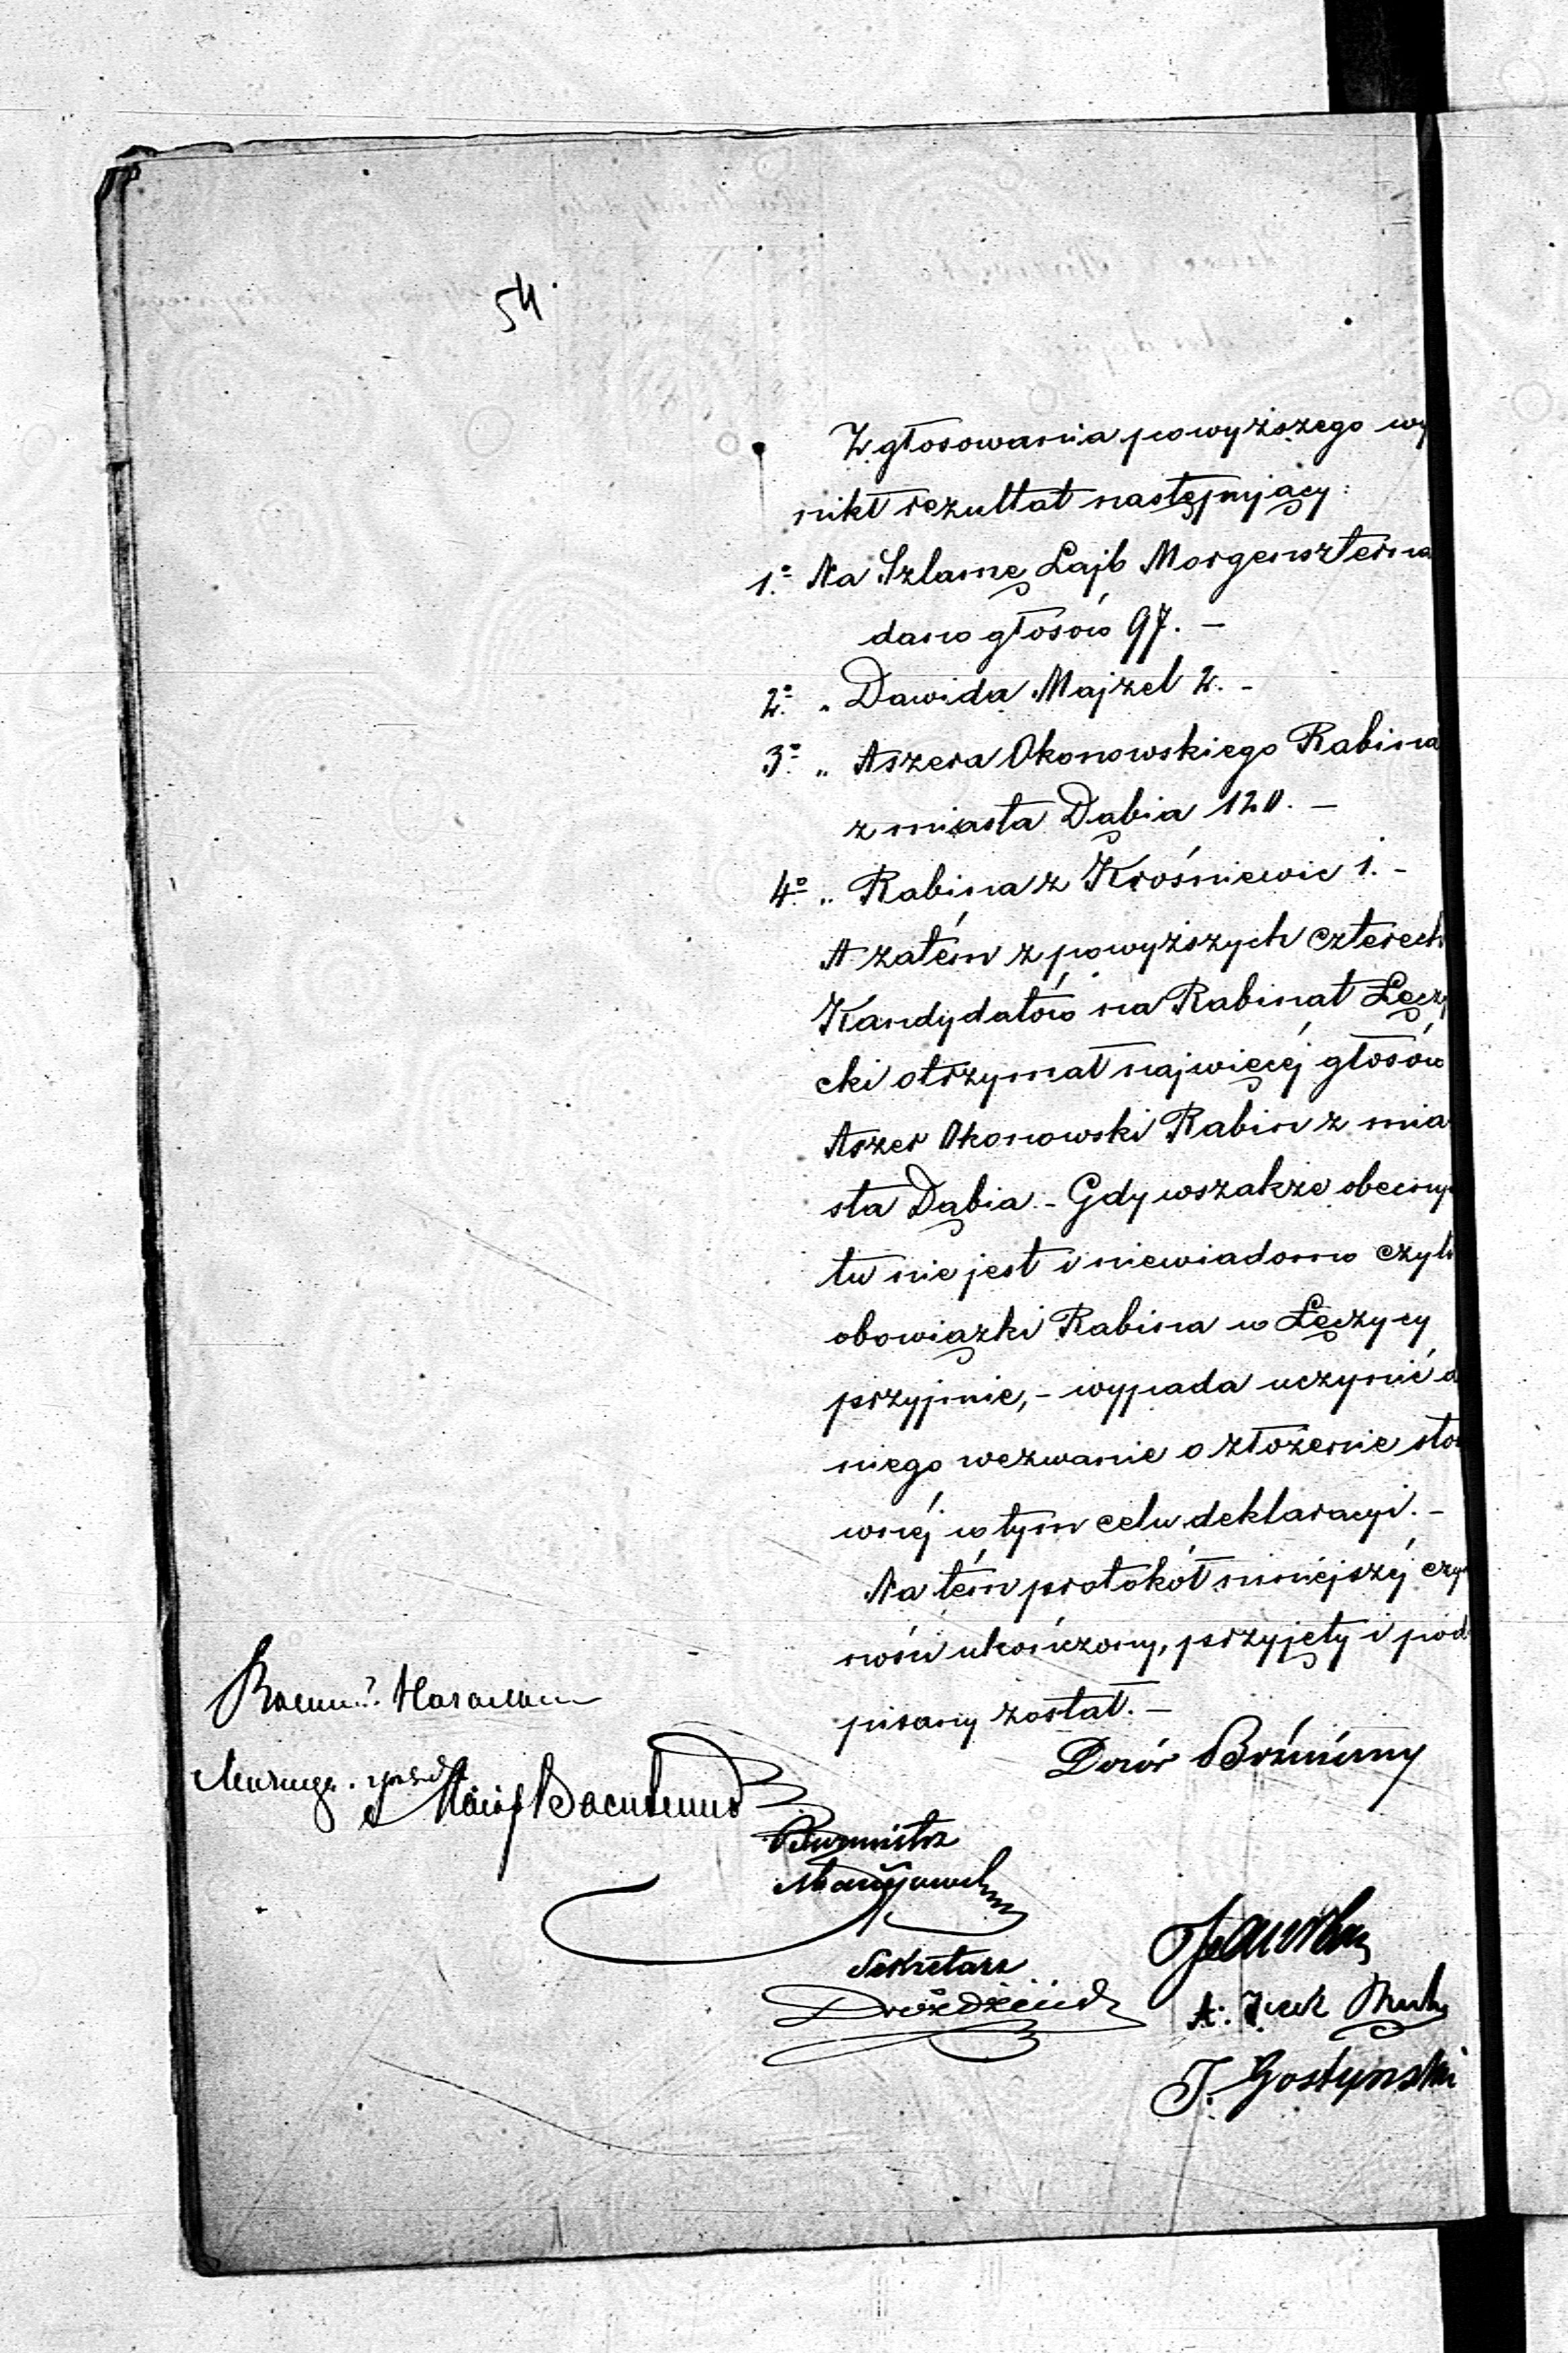 54.
Z głosowania powyższego wy
nikł rezultat następujący:
1.° Na Szlamę Lajb Morgenszterna
dano głosów 97. –
2.° „ Dawida Majzel 2. –
3.° „ Aszera Okonowskiego Rabina
z miasta Dąbia 120. –
4.° „ Rabina z Krośniewic 1. –
A zatém z powyższych czterech
Kandydatów na Rabinat Łęczy
cki otrzymał najwięcéj głosów
Aszer Okonowski Rabin z mia
sta Dąbia. – Gdy wszakże obecny
tu nie jest i niewiadomo czyli
obowiązki Rabina w Łęczycy
przyjmie, – wypada uczynić d
niego wezwanie o złożenie stos
wnéj w tym celu deklaracyi. –
Na tém protokół niniéjszy czy
ności ukończony, przyjęty i pod
pisany został. –
Dozór Bóżniczny
Burmistrz
Sekretarz
J. Gostynski